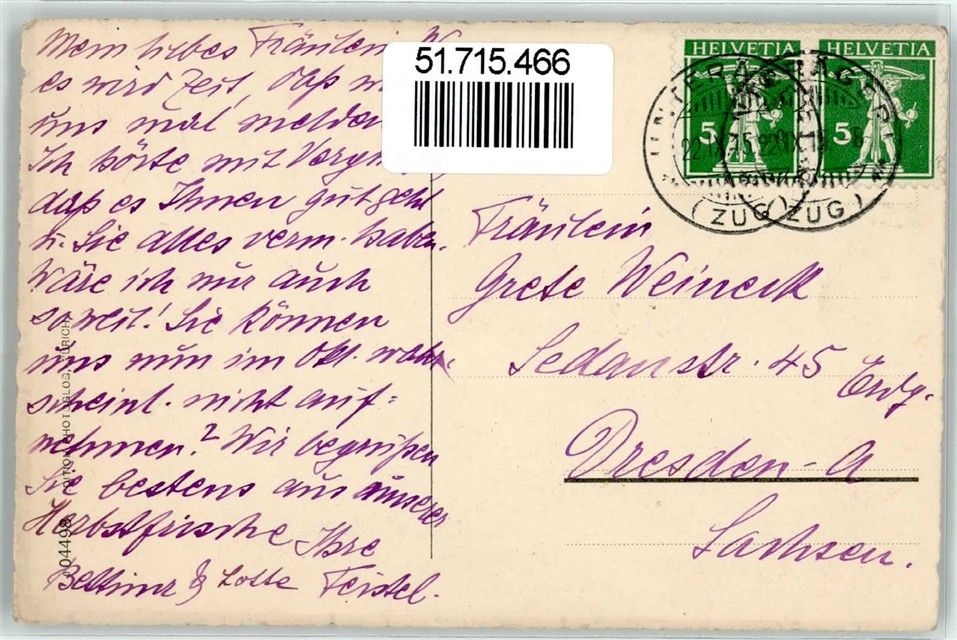 Mein liebes Fräulein W
es wird Zeit, daß
uns mal melden
Ich hörte mit
daß es Ihnen gut geht
u. Sie alles verm. haben.
Wäre ich nur auch
soweit! Sie können
uns nun im Okt. wahr-
scheinl. nicht auf=
nehmen? Wir begrüßen
Sie bestens aus unserer
Herbstfrische Ihre
Bettina & Lotte Feistel.
51.715.466
HELVETIA HELVETIA
5 5
UNTERÄGERI
(ZUG) (ZUG)
Fräulein
Grete Weineck
Sedanstr. 45 Erdg.
Dresden-A
Sachsen.
004498 EDITION PHOTOGLOB, ZÜRICH